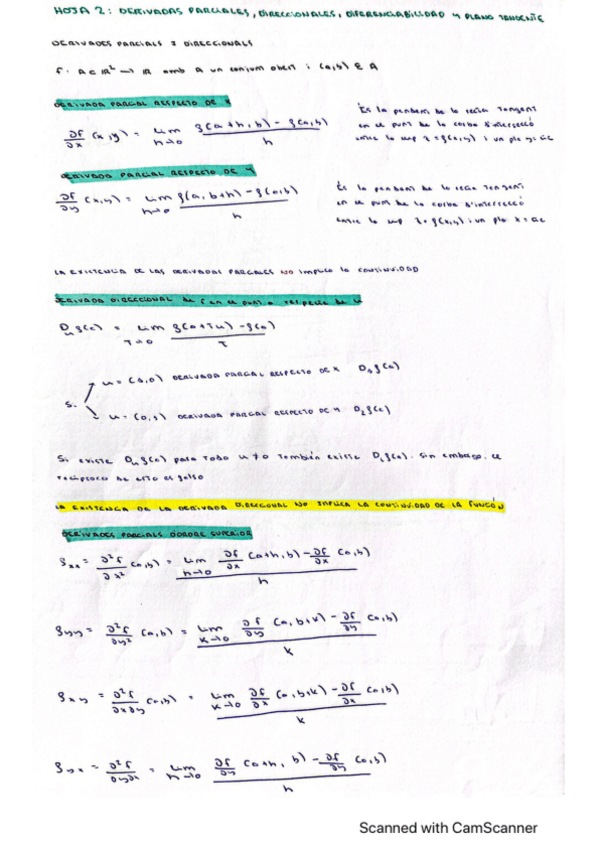 HOJA 2: DERIVADAS PARCIALES, DIRECCIONALES, DIFERENCIABILIDAD Y PLANO TANGENTE
DERIVADES PARCIALS I DIRECCIONALS
f: A ⊂ ℝ² → ℝ amb A un conjunt obert i (a,b) ∈ A
DERIVADA PARCIAL RESPECTO DE X
∂f/∂x (x,y) = lim h→0 f(a+h,b) - f(a,b) / h
És la pendent de la recta tangent
en el punt de la corba d'intersecció
entre la sup z=f(x,y) i un pla y=
DERIVADA PARCIAL RESPECTO DE Y
∂f/∂y (x,y) = lim h→0 f(a,b+h) - f(a,b) / h
És la pendent de la recta tangent
en el punt de la corba d'intersecció
entre la sup z=f(x,y) i un pla x=
LA EXISTENCIA DE LAS DERIVADAS PARCIALES NO IMPLICA LA CONTINUIDAD
DERIVADA DIRECCIONAL de f en el punt a respecte de u
Dᵤf(a) = lim T→0 f(a+Tu) - f(a) / T
Si
u = (1,0) DERIVADA PARCIAL RESPECTO DE X D₁f(a)
u = (0,1) DERIVADA PARCIAL RESPECTO DE Y D₂f(a)
Si existe Dᵤf(a) para todo u≠0 también existe f(a). Sin embargo, el
recíproco de esto es falso
LA EXISTENCIA DE LA DERIVADA DIRECCIONAL NO IMPLICA LA CONTINUIDAD DE LA FUNCIÓN
DERIVADES PARCIALS D'ORDRE SUPERIOR
fxx = ∂²f/∂x² (a,b) = lim h→0 ∂f/∂x (a+h,b) - ∂f/∂x (a,b) / h
fyy = ∂²f/∂y² (a,b) = lim k→0 ∂f/∂y (a,b+k) - ∂f/∂y (a,b) / k
fxy = ∂²f/∂x∂y (a,b) = lim k→0 ∂f/∂x (a,b+k) - ∂f/∂x (a,b) / k
fyx = ∂²f/∂y∂x = lim h→0 ∂f/∂y (a+h,b) - ∂f/∂y (a,b) / h
Scanned with CamScanner